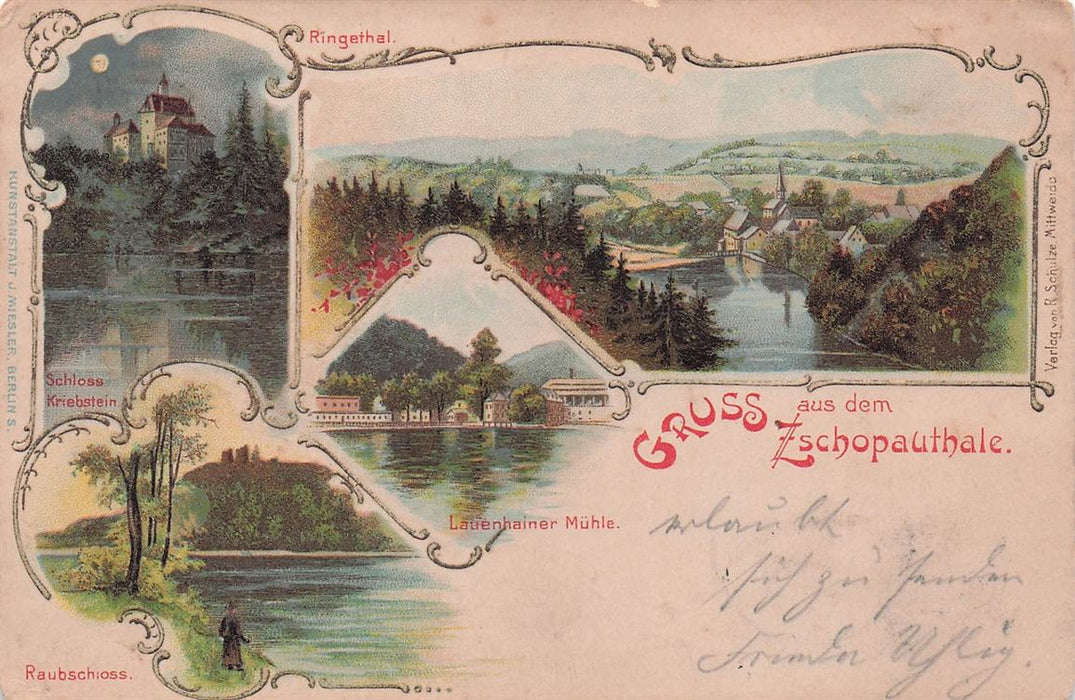 Ringethal.
KUNSTANSTALT J. MIESLER, BERLIN S.
Schloss
Kriebstein
Verlag von R. Schulze, Mittweida
GRUSS aus dem
Zschopauthale.
Lauenhainer Mühle.
Raubschloss.
erlaubt
sich zu senden
Frieda Uhlig.